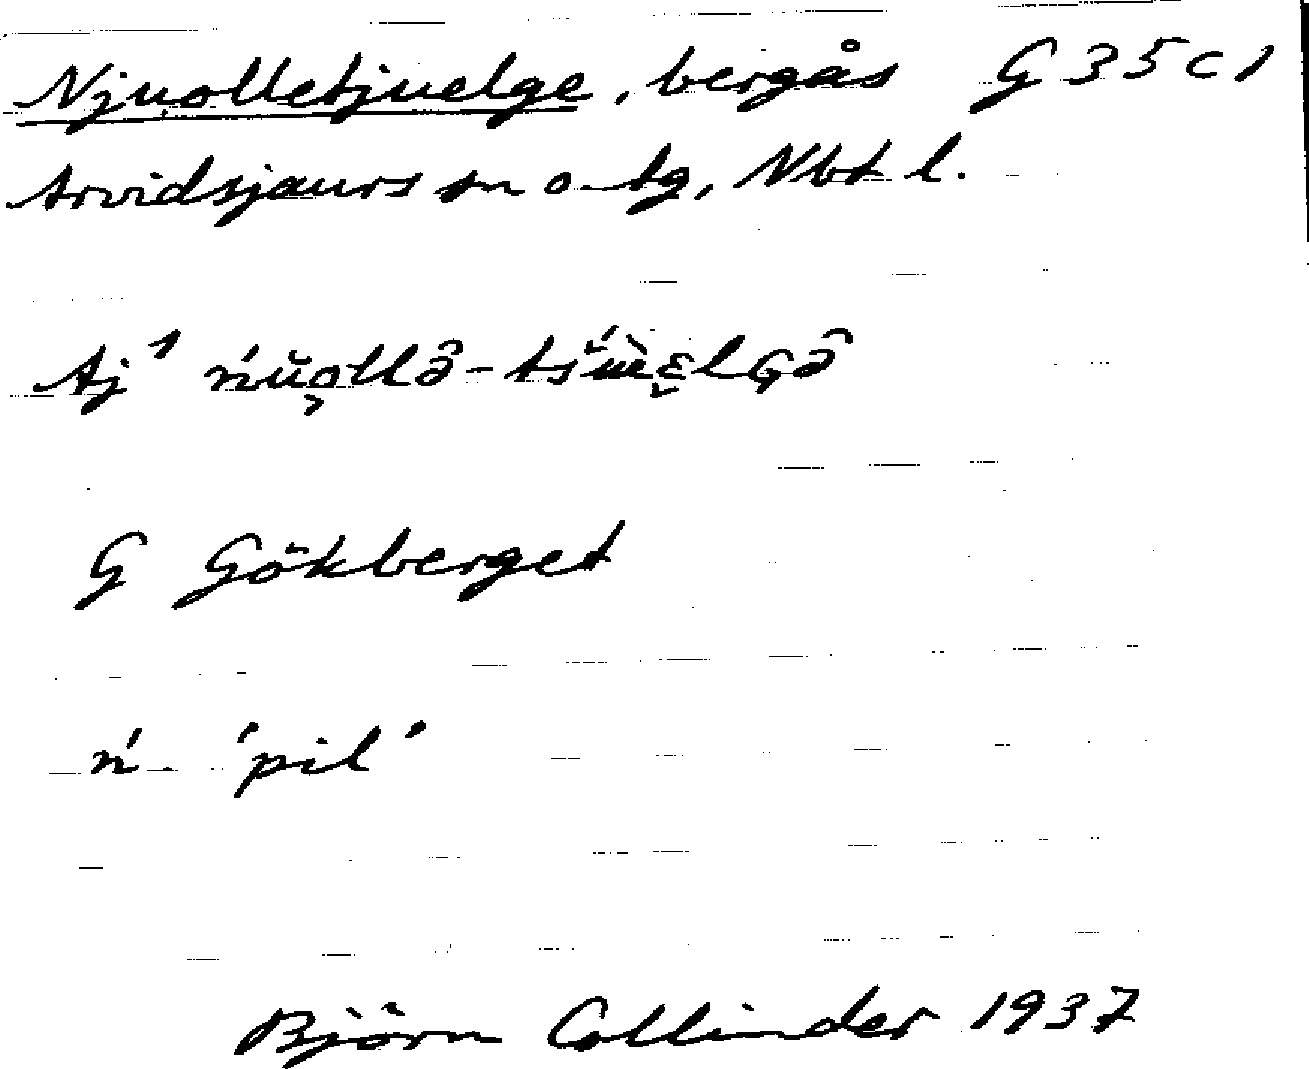 Njuolletjuelge, bergås G 35 c 1
Arvidsjaurs sn o tg, Nbt l.
Aj¹ ńŭo̧llə̑-tś
G Gökberget
ń. 'pil'
Björn Collinder 1937